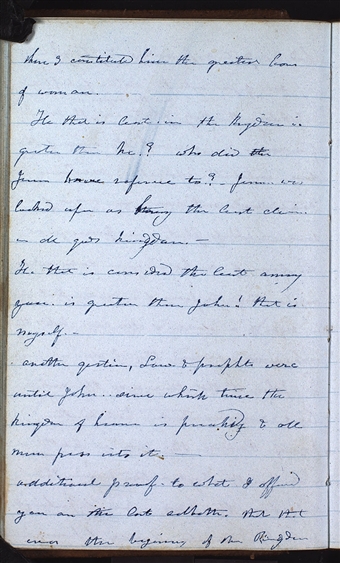 these 3 constituted him the greatest born
of woman.
He that is least in the kingdom is
greater than he.? who did the
Jesus have reference to?- Jesus was
looked upon as having the least claim
in de gods kingdom.-
He that is considered the least among
you. is greater than John! that is
myself.-
another question, Law & prophets were
until John.- since which time the
kingdom of heaven is preachd & all
men press into it.-
additional proof. to what I offered
you on the last sabbath. that that
was the beginning of the Kingdom